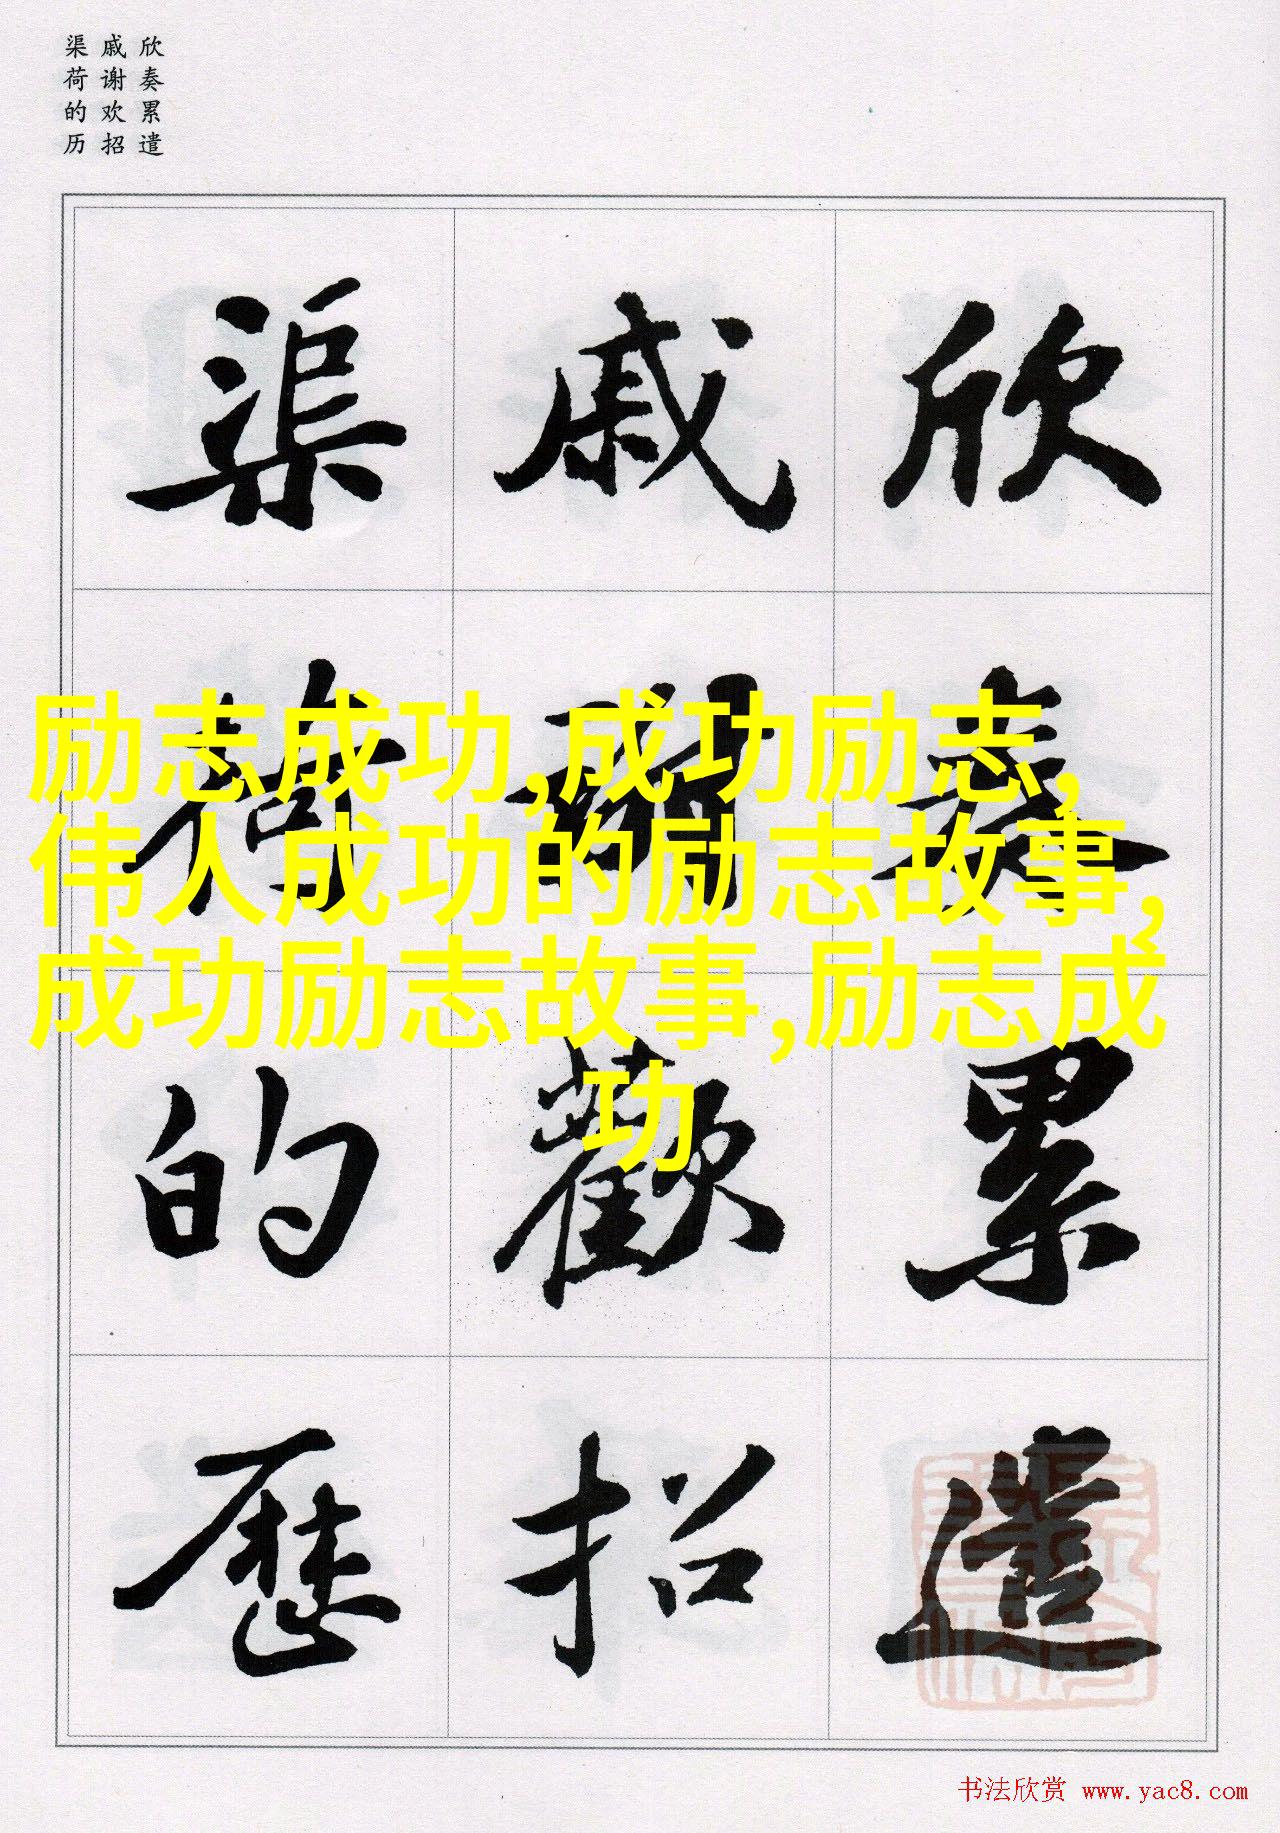 欣奏累遣
戚谢欢招
渠荷的历
欣奏累遣
戚謝歡招
渠荷的歷
励志成功,成功励志,
伟人成功的励志故事,
成功励志故事,励志成
功
书法欣赏 www.yac8.com